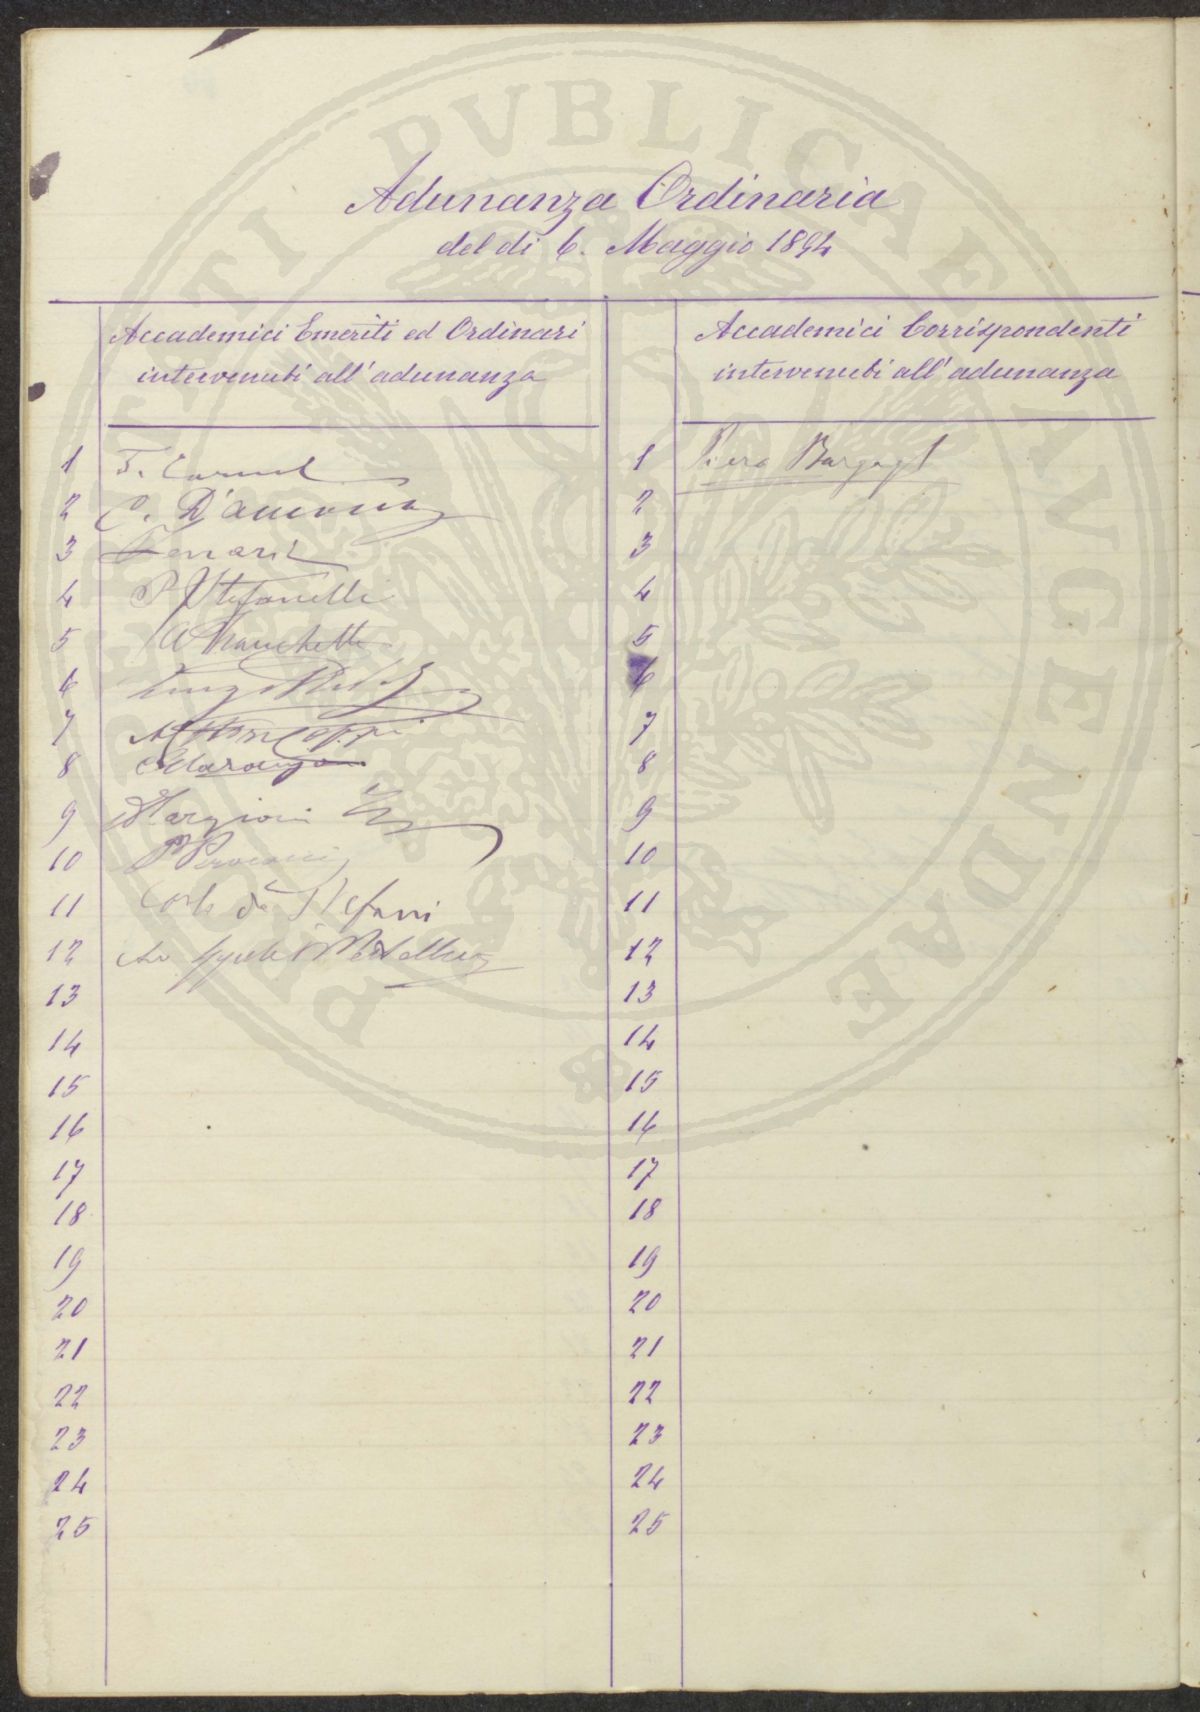 PROSPERITATI PVBLICAE AVGENDAE
Adunanza Ordinaria
del dì 6. Maggio 1894
Accademici Emeriti ed Ordinari
intervenuti all'adunanza
1 T. Caruel
2 C. D'Ancona
3 Ferrari
4 P. Stefanelli
5 A
6
7
8
9
10
11 Carlo de Stefani
12
13
14
15
16
17
18
19
20
21
22
23
24
25
Accademici Corrispondenti
intervenuti all'adunanza
1 Piero Bargagli
2
3
4
5
6
7
8
9
10
11
12
13
14
15
16
17
18
19
20
21
22
23
24
25